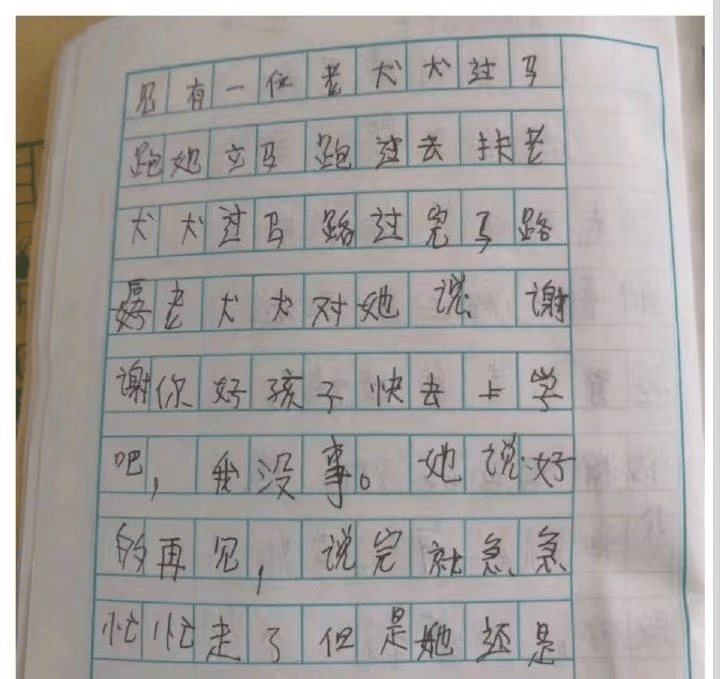 见有一位老犬犬过马
跑她立马跑过去扶老
犬犬过马路过完马路
后老犬犬对她说:谢
谢你好孩子快去上学
吧,我没事。她说:好
的再见,说完就急急
忙忙走了但是她还是